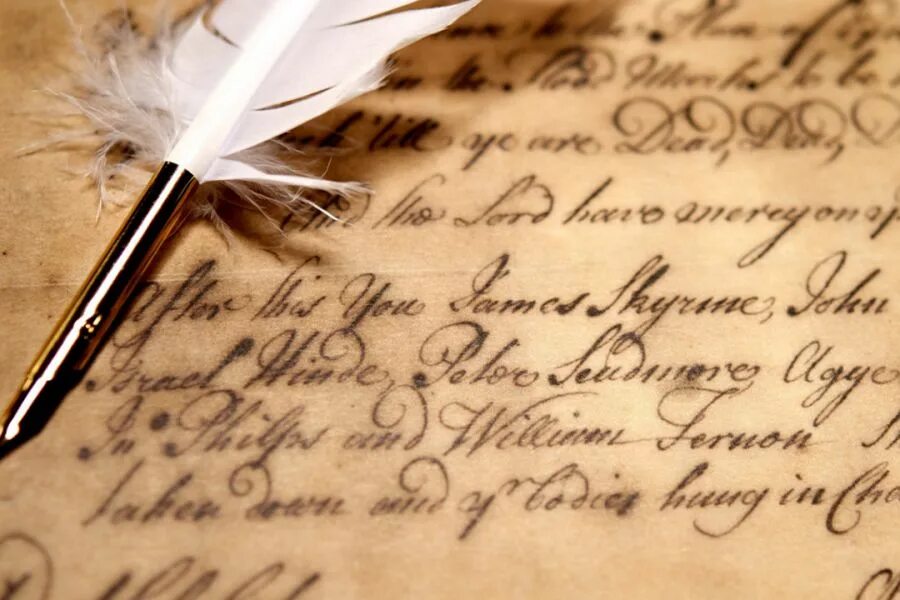 in the
till ye are Dead, Dead,
And the Lord have mercy on y
After this You James Skyrme, John
Israel Hinde, Peter Scudmore Agge
Jn.o Philps and William Fernon Sh
taken down and yr bodies hung in Cha